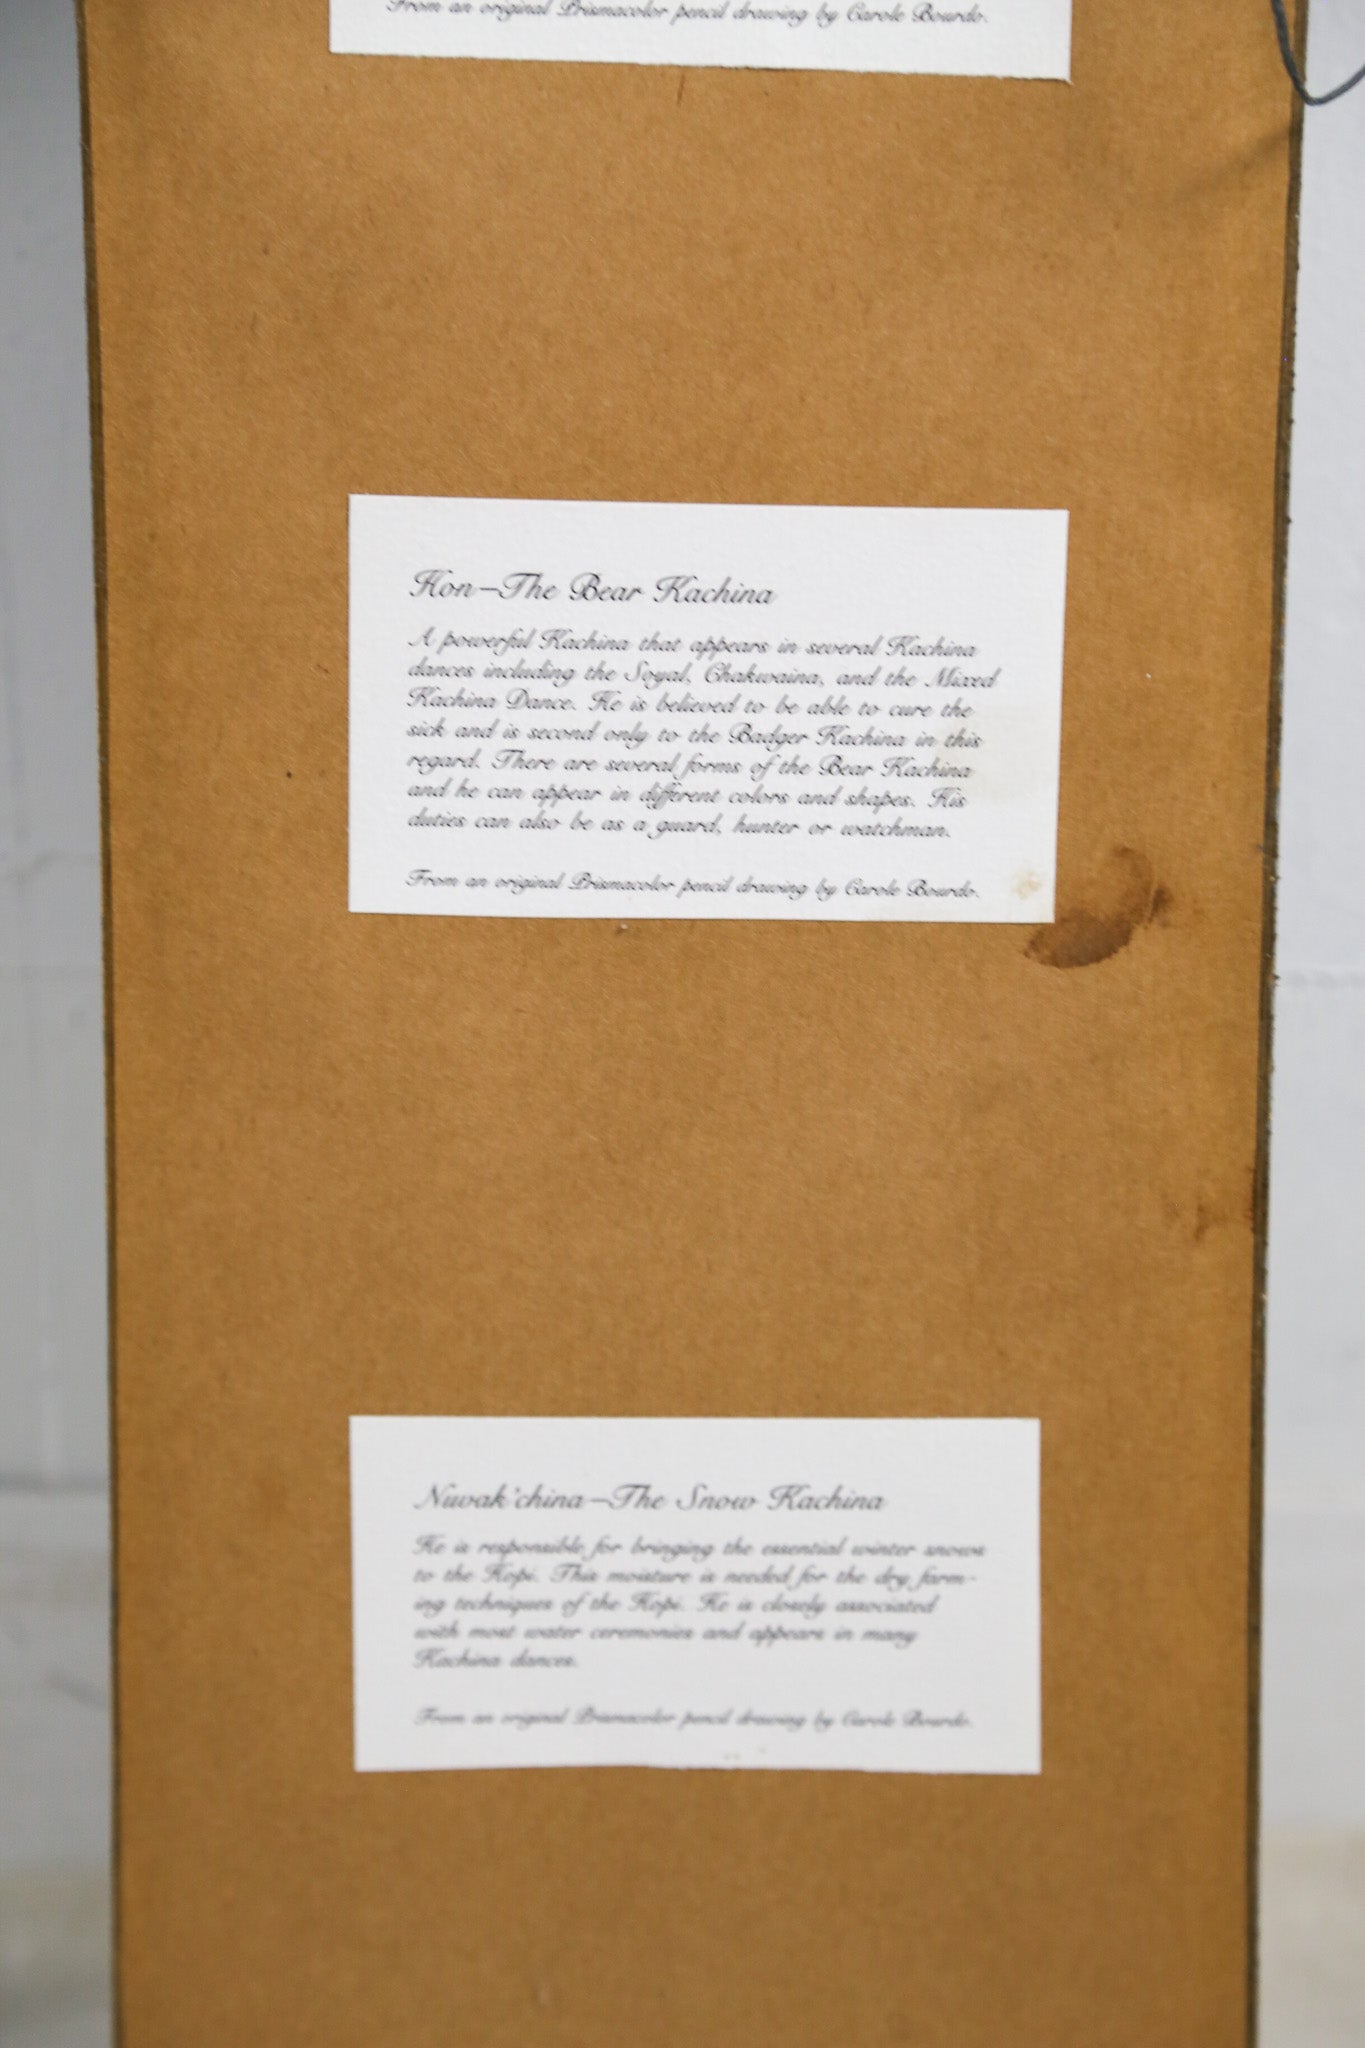 From an original Prismacolor pencil drawing by Carole Bourdo.
Hon—The Bear Kachina
A powerful Kachina that appears in several Kachina
dances including the Soyal, Chakwaina, and the Mixed
Kachina Dance. He is believed to be able to cure the
sick and is second only to the Badger Kachina in this
regard. There are several forms of the Bear Kachina
and he can appear in different colors and shapes. His
duties can also be as a guard, hunter or watchman.
From an original Prismacolor pencil drawing by Carole Bourdo.
Nuvak'china—The Snow Kachina
He is responsible for bringing the essential winter snows
to the Hopi. This moisture is needed for the dry farm-
ing techniques of the Hopi. He is closely associated
with most water ceremonies and appears in many
Kachina dances.
From an original Prismacolor pencil drawing by Carole Bourdo.